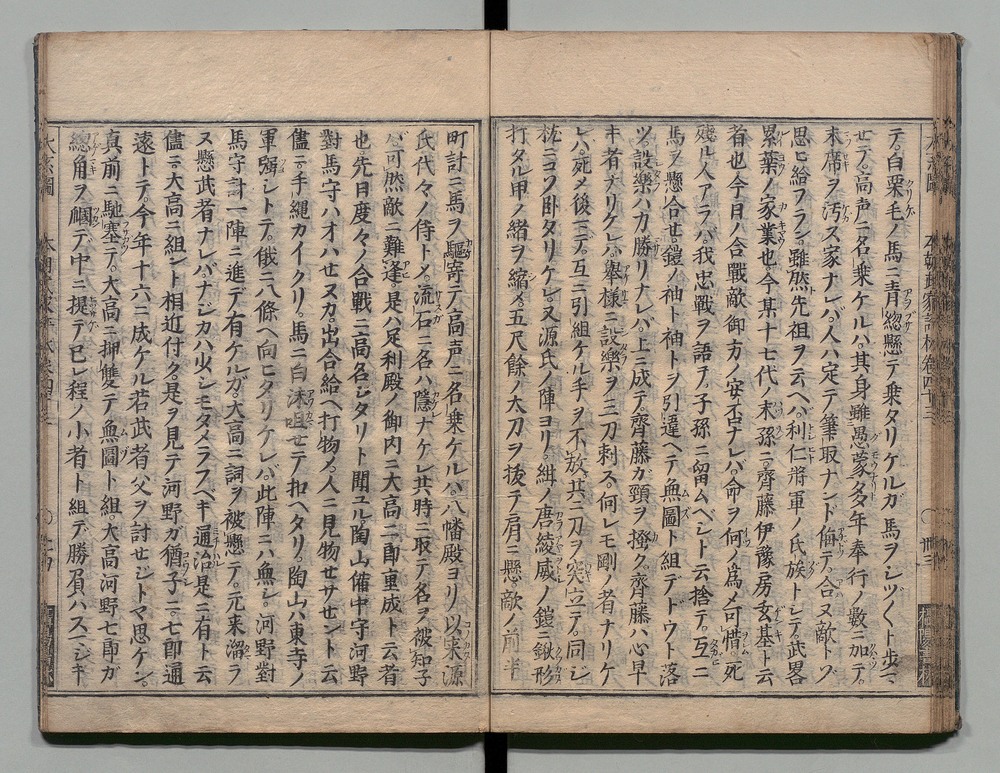 テ。白栗毛ノ馬ニ青總懸テ乗タリケルガ馬ヲシヅ〱ト歩マ
セテ。高声ニ名乗ケルハ。其身雖愚蒙多年奉行ノ數ニ加テ。
末席ヲ汚ス家ナレバ。人ハ定テ筆取ナンド侮テ。合ヌ敵トゾ
思ヒ給フラン。雖然先祖ヲ云ヘハ。利仁將軍ノ氏族トシテ。武畧
累葉ノ家業也今某十七代ノ末孫ニ。齊藤伊豫房玄基ト云
者也今日ノ合戰敵御方ノ安否ナレバ。命ヲ何ノ爲メ可惜。死
殘ル人アラバ。我忠戰ヲ語テ。子孫ニ留ムベシト云捨テ。互ニ
馬ヲ懸合セ。鎧ノ袖ト袖トヲ引違ヘテ無圖ト組テドウト落
ツ。設樂ハ力勝リナレバ。上ニ成テ。齊藤ガ頸ヲ搔ク。齊藤ハ心早
キ者ナリケレバ。擧樣ニ設樂ヲ三刀刺ス。何レモ剛ノ者ナリケ
レバ。死メ後マデ。互ニ引組ケル手ヲ不放。共ニ刀ヲ突立テ。同シ
枕ニコソ卧タリケレ。又源氏ノ陣ヨリ。紺ノ唐綾威ノ鎧ニ鍬形
打タル甲ノ緒ヲ縮メ五尺餘ノ太刀ヲ抜テ肩ニ懸敵ノ前半
町計ニ馬ヲ驅寄テ高声ニ名乗ケルハ。八幡殿ヨリ以来源
氏代々ノ侍トメ。流石ニ名ハ隱ナケレ共時ニ取テ名ヲ被知子
バ。可然敵ニ難逢。是ハ足利殿ノ御内ニ大高二郎重成ト云者
也先日度々ノ合戰ニ高名シタリト聞ユル陶山備中守河野
對馬守ハオハセヌカ。出合給ヘ打物メ。人ニ見物セサセント云
儘ニ。手縄カイクリ。馬ニ白沫咀セテ扣ヘタリ。陶山ハ東寺ノ
軍強シトテ。俄ニ八條ヘ向ヒタリケレバ。此陣ニハ無シ。河野對
馬守計一陣ニ進デ有ケルガ。大高ニ詞ヲ被懸テ。元来溜ラ
ヌ懸武者ナレバ。ナジカハ少シモタメラフベキ通治是ニ有ト云
儘ニ。大高ニ組ント相近付ク。是ヲ見テ河野ガ猶子ニ。七郎通
遠トテ。今年十六ニ成ケル若武者父ヲ討セジトマ思ケン。
真前ニ馳塞テ。大高ニ押雙テ無圖ト組大高河野七郎ガ
總角ヲ𫼟デ。中ニ提テ已レ程ノ小者ト組デ勝負ハスマジキ